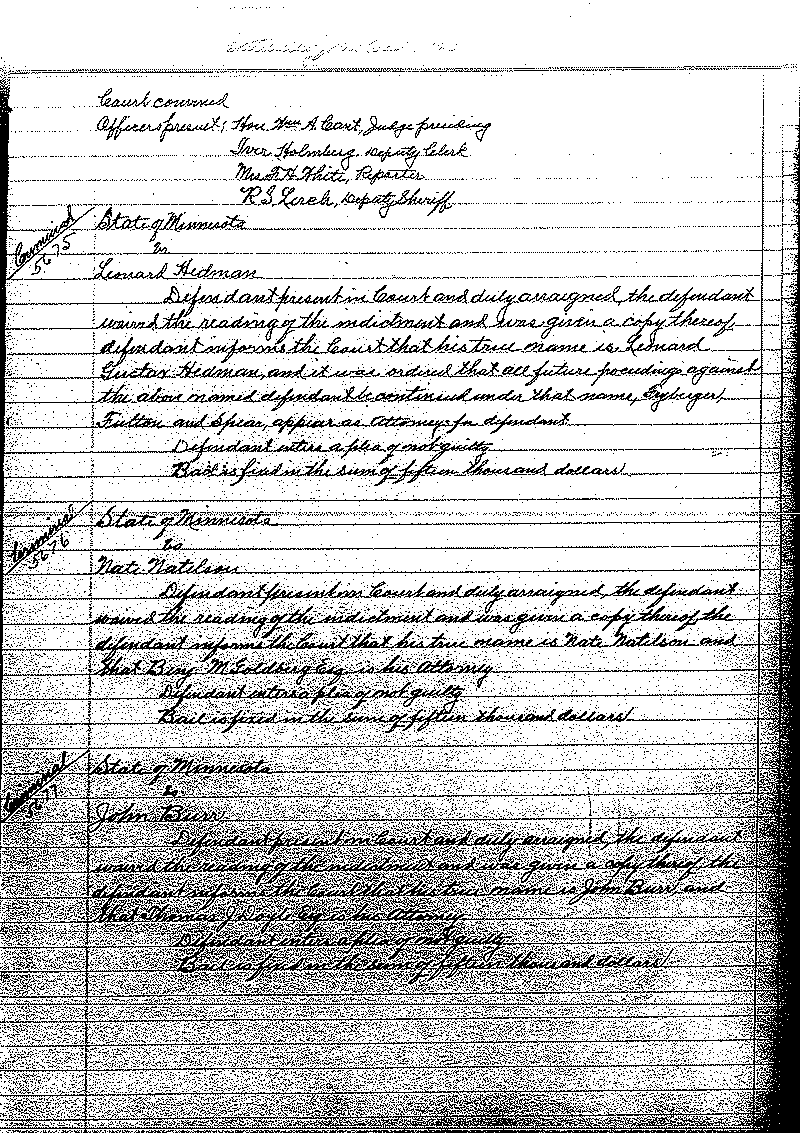 Saturday
Court convened
Officers present; Hon. Wm A. Cant, Judge presiding
Iver Holmberg, Deputy Clerk
Mrs. F. H. White, Reporter
R S Lerch, Deputy Sheriff
Criminal
5675
State of Minnesota
vs
Leonard Hedman
Defendant present in Court and duly arraigned, the defendant
waived the reading of the indictment and was given a copy thereof,
defendant informs the Court that his true name is Leonard
Gustav Hedman, and it was ordered that all future proceedings against
the above named defendant be continued under that name, Fryberger,
Fulton and Spear, appear as Attorneys for defendant
Defendant enters a plea of not guilty
Bail is fixed in the sum of fifteen thousand dollars
Criminal
5676
State of Minnesota
vs
Nate Natelson
Defendant present in Court and duly arraigned, the defendant
waived the reading of the indictment and was given a copy thereof the
defendant informs the Court that his true name is Nate Natelson and
that Benj M Goldberg Esq is his Attorney
Defendant enters a plea of not guilty
Bail is fixed in the sum of fifteen thousand dollars
Criminal
5677
State of Minnesota
vs
John Burr
Defendant present in Court and duly arraigned, the defendant
waived the reading of the indictment and was given a copy thereof the
defendant informs the Court that his true name is John Burr and
that Thomas J Doyle Esq is his Attorney
Defendant enters a plea of not guilty
Bail is fixed in the sum of fifteen thousand dollars